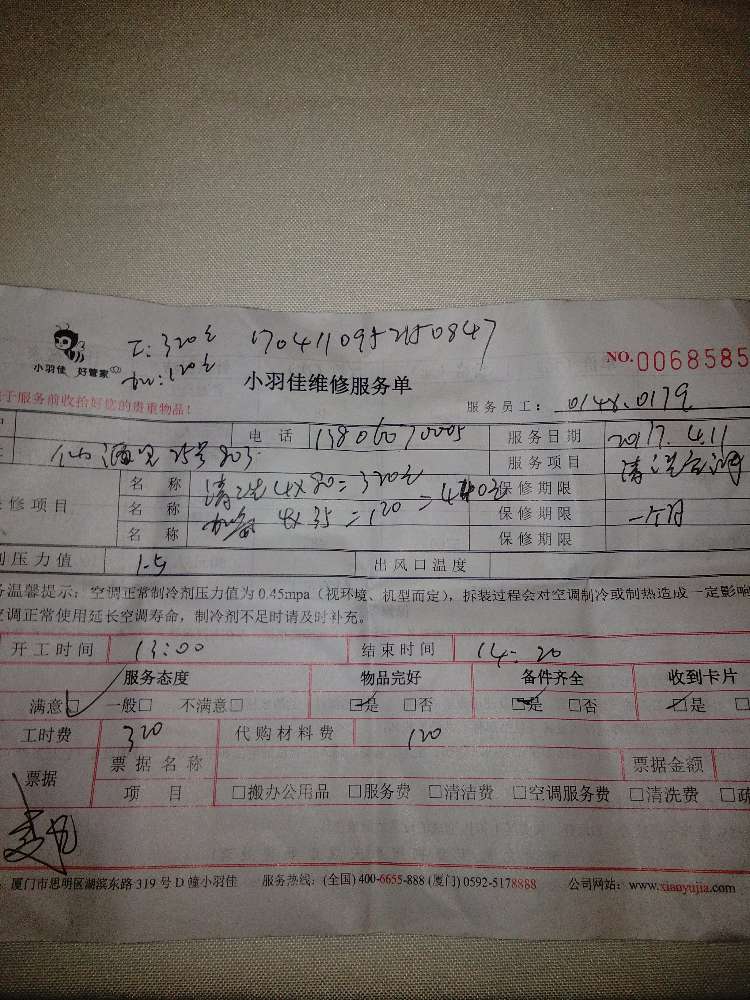 工: 320元 17041109521150847
加: 120元
小羽佳 好管家
小羽佳维修服务单
NO.0068585
于服务前收拾好您的贵重物品!
服务员工: 0148.0179
电话 13806070005 服务日期 2017.4.11
25号803 服务项目 清洗空调
修项目 名称 清洗 4X80=320元 保修期限
名称 加氟 4X35=120 =440元 保修期限 一个月
名称 保修期限
剂压力值 1.5 出风口温度
务温馨提示: 空调正常制冷剂压力值为0.45mpa(视环境、机型而定),拆装过程会对空调制冷或制热造成一定影响
空调正常使用延长空调寿命,制冷剂不足时请及时补充。
开工时间 13:00 结束时间 14:20
服务态度 物品完好 备件齐全 收到卡片
满意□ 一般□ 不满意□ □是 □否 □是 □否 □是 □
工时费 320 代购材料费 120
票据 票据名称 票据金额
项目 □搬办公用品 □服务费 □清洁费 □空调服务费 □清洗费 □疏
厦门市思明区湖滨东路319号D幢小羽佳 服务热线:(全国)400-6655-888 (厦门)0592-5178888 公司网站: www.xiaoyujia.com